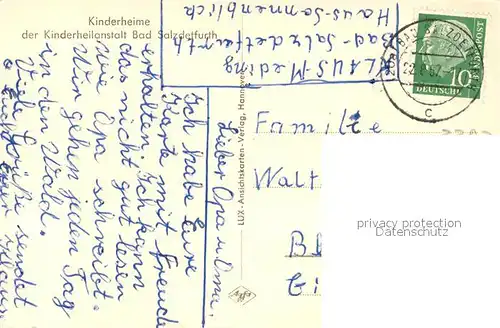 Kinderheime
der Kinderheilanstalt Bad Salzdetfurth
KLAUS-Meding
Bad-Salzdetfurth
Haus-Sonnenblick
Lieber Opa u. Oma.
Ich habe Eure
Karte mit Freude
erhalten. Ich kann
das nicht gut lesen
wie Opa schreibt.
Wir gehen jeden Tag
in den Wald.
Viele Grüße sendet
Euch Euer Klaus
LUX-Ansichtskarten-Verlag, Hannover
Agfa
DEUTSCHE
10
BAD SALZDETFURTH
c
Familie
Walt
privacy protection
veryimportantlot.com